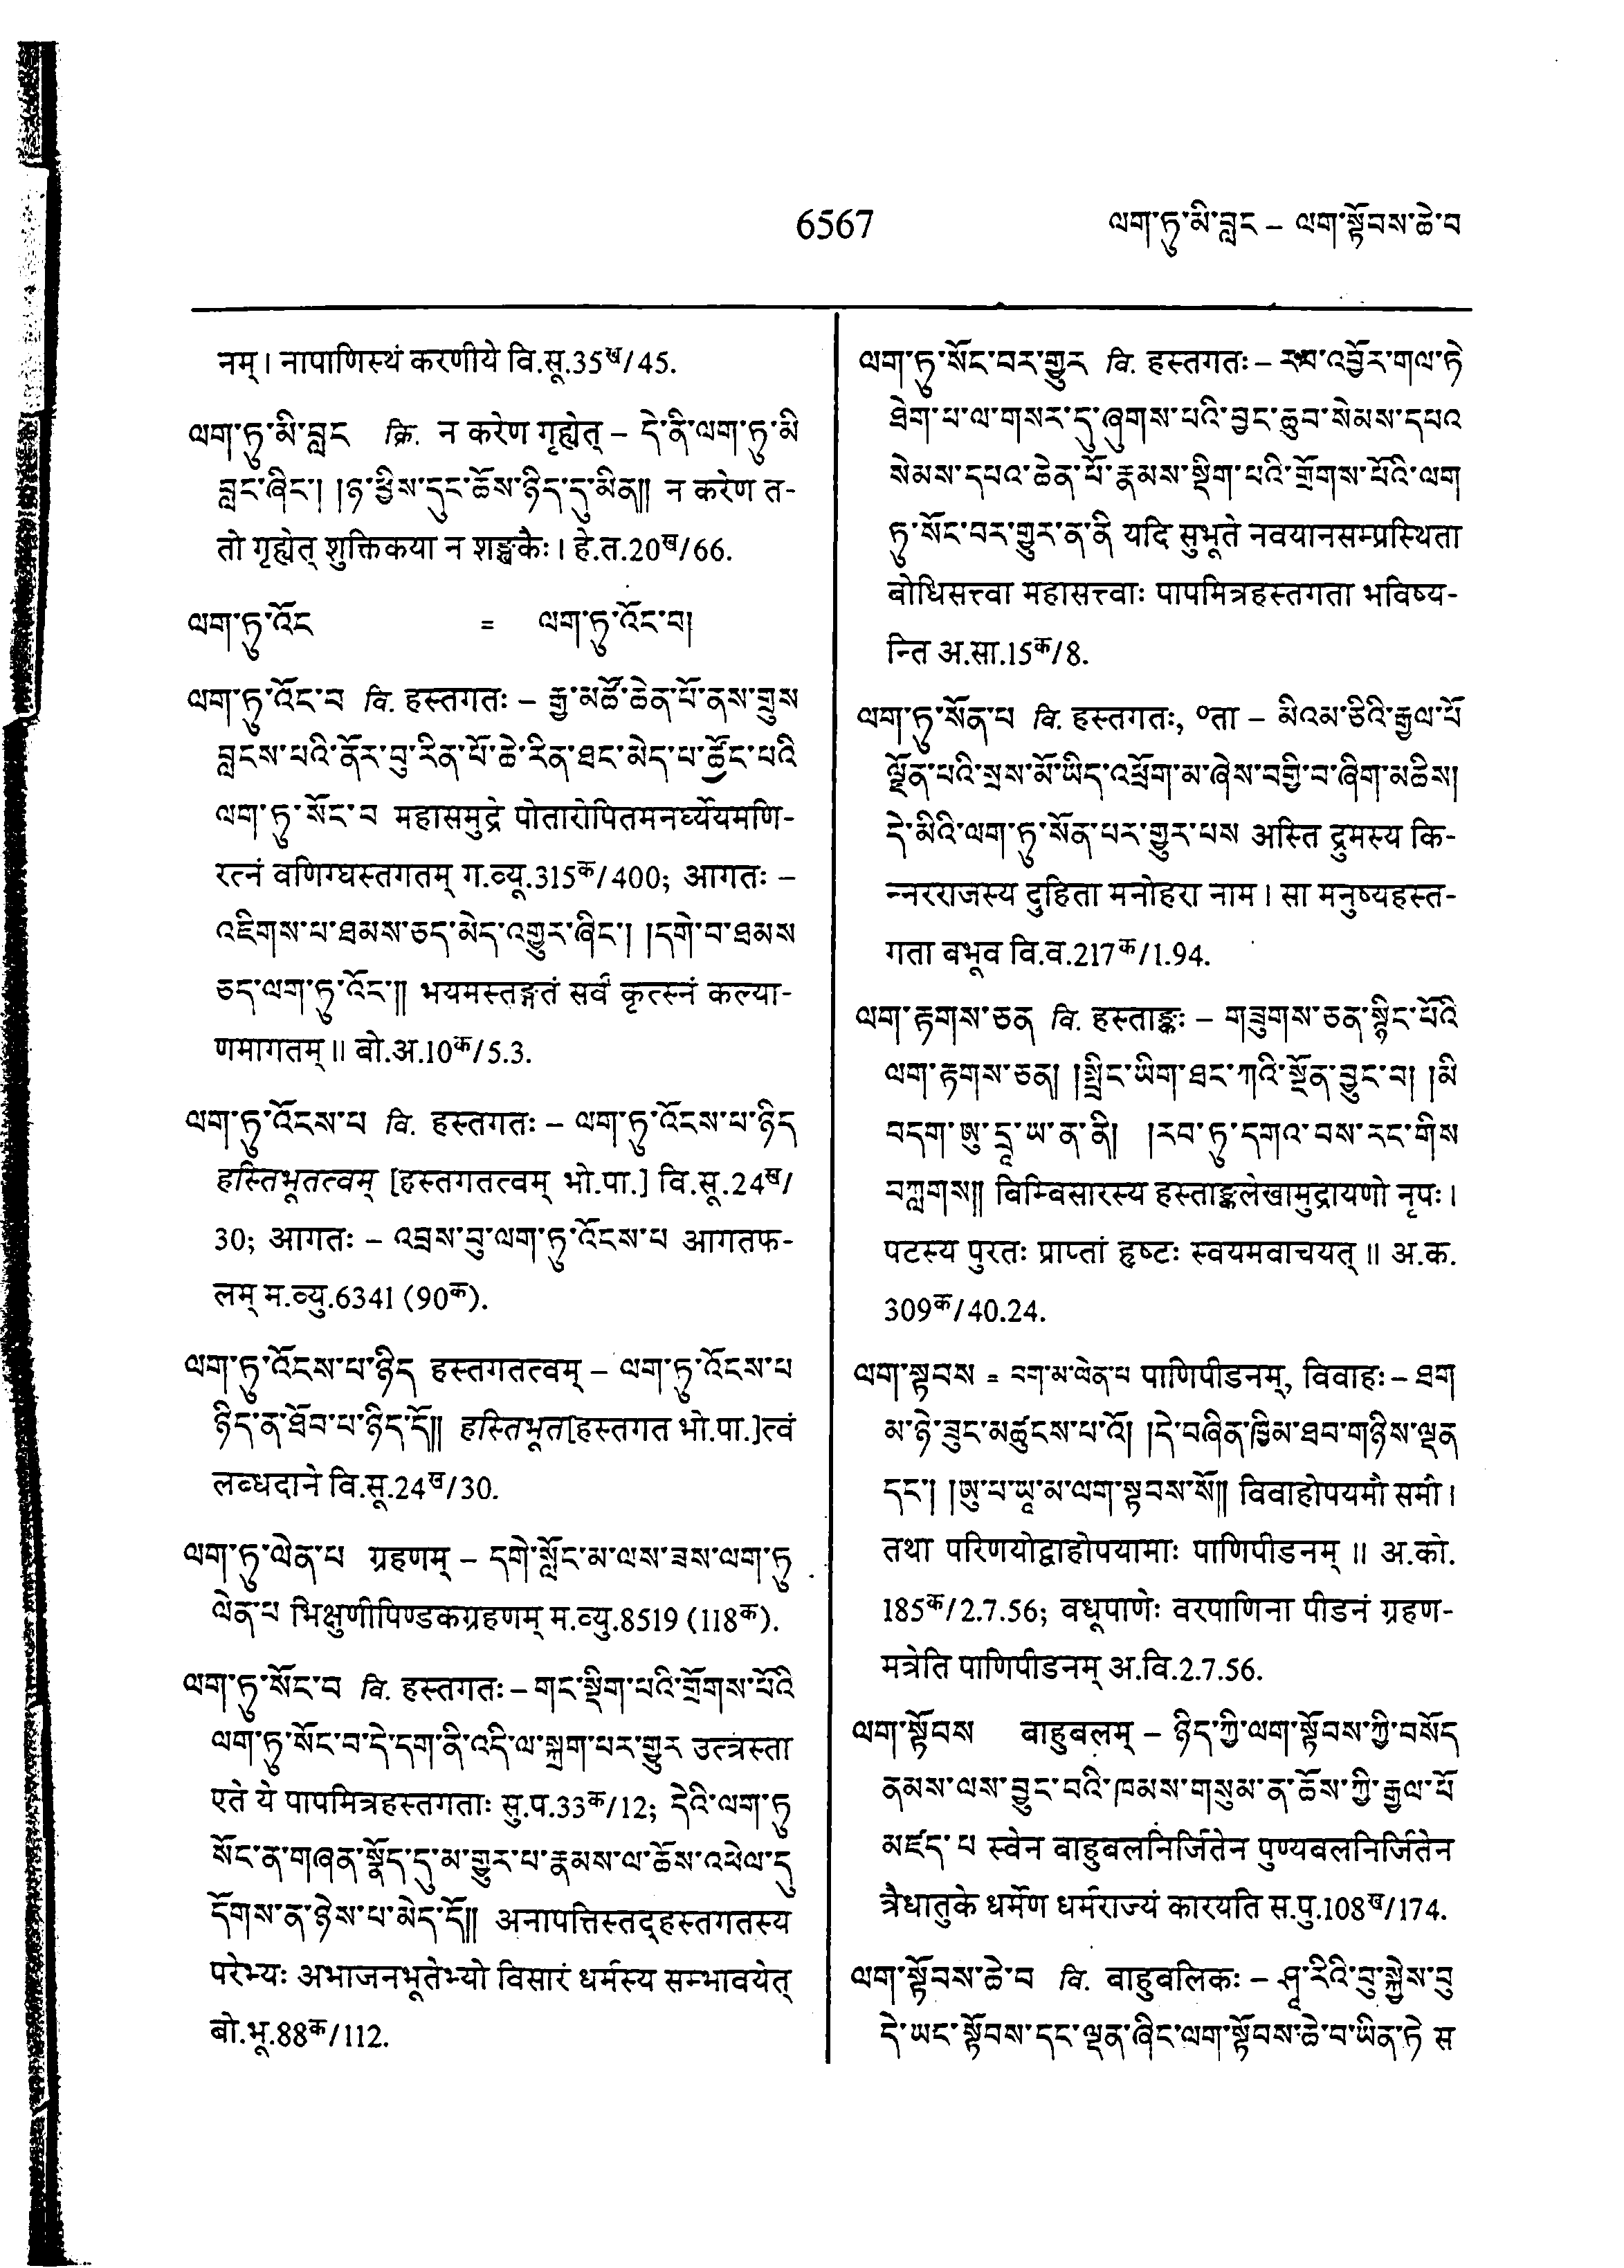 6567
ལག་ཏུ་མི་བླང – ལག་སྟོབས་ཆེ་བ
नम्। नापाणिस्थं करणीये वि.सू.35ख/45.
ལག་ཏུ་མི་བླང क्रि. न करेण गृह्येत् – དེ་ནི་ལག་ཏུ་མི
བླང་ཞིང་། །ཉ་ཕྱིས་དུང་ཆོས་ཉིད་དུ་མིན།། न करेण त-
तो गृह्येत् शुक्तिकया न शङ्खकैः। हे.त.20ख/66.
ལག་ཏུ་འོང = ལག་ཏུ་འོང་བ།
ལག་ཏུ་འོང་བ वि. हस्तगतः – རྒྱ་མཚོ་ཆེན་པོ་ནས་གྲུས
བླངས་པའི་ནོར་བུ་རིན་པོ་ཆེ་རིན་ཐང་མེད་པ་ཚོང་པའི
ལག་ཏུ་སོང་བ महासमुद्रे पोतारोपितमनर्घ्येयमणि-
रत्नं वणिग्घस्तगतम् ग.व्यू.315क/400; आगतः –
འཇིགས་པ་ཐམས་ཅད་མེད་འགྱུར་ཞིང་། །དགེ་བ་ཐམས
ཅད་ལག་ཏུ་འོང་།། भयमस्तङ्गतं सर्वं कृत्स्नं कल्या-
णमागतम्॥ बो.अ.10क/5.3.
ལག་ཏུ་འོངས་པ वि. हस्तगतः – ལག་ཏུ་འོངས་པ་ཉིད
हस्तिभूतत्वम् [हस्तगतत्वम् भो.पा.] वि.सू.24ख/
30; आगतः – འབྲས་བུ་ལག་ཏུ་འོངས་པ आगतफ-
लम् म.व्यु.6341 (90क).
ལག་ཏུ་འོངས་པ་ཉིད हस्तगतत्वम् – ལག་ཏུ་འོངས་པ
ཉིད་ན་ཐོབ་པ་ཉིད་དོ།། हस्तिभूत[हस्तगत भो.पा.]त्वं
लब्धदाने वि.सू.24ख/30.
ལག་ཏུ་ལེན་པ ग्रहणम् – དགེ་སློང་མ་ལས་ཟས་ལག་ཏུ
ལེན་པ भिक्षुणीपिण्डकग्रहणम् म.व्यु.8519 (118क).
ལག་ཏུ་སོང་བ वि. हस्तगतः – གང་སྡིག་པའི་གྲོགས་པོའི
ལག་ཏུ་སོང་བ་དེ་དག་ནི་འདི་ལ་སྐྲག་པར་གྱུར उत्त्रस्ता
एते ये पापमित्रहस्तगताः सु.प.33क/12; དེའི་ལག་ཏུ
སོང་ན་གཞན་སྣོད་དུ་མ་གྱུར་པ་རྣམས་ལ་ཆོས་འཕེལ་དུ
དོགས་ན་ཉེས་པ་མེད་དོ།། अनापत्तिस्तद्हस्तगतस्य
परेभ्यः अभाजनभूतेभ्यो विसारं धर्मस्य सम्भावयेत्
बो.भू.88क/112.
ལག་ཏུ་སོང་བར་གྱུར वि. हस्तगतः – རབ་འབྱོར་གལ་ཏེ
ཐེག་པ་ལ་གསར་དུ་ཞུགས་པའི་བྱང་ཆུབ་སེམས་དཔའ
སེམས་དཔའ་ཆེན་པོ་རྣམས་སྡིག་པའི་གྲོགས་པོའི་ལག
ཏུ་སོང་བར་གྱུར་ན་ནི यदि सुभूते नवयानसम्प्रस्थिता
बोधिसत्त्वा महासत्त्वाः पापमित्रहस्तगता भविष्य-
न्ति अ.सा.15क/8.
ལག་ཏུ་སོན་པ वि. हस्तगतः, ०ता – མིའམ་ཅིའི་རྒྱལ་པོ
ལྗོན་པའི་སྲས་མོ་ཡིད་འཕྲོག་མ་ཞེས་བགྱི་བ་ཞིག་མཆིས།
དེ་མིའི་ལག་ཏུ་སོན་པར་གྱུར་པས अस्ति द्रुमस्य कि-
न्नरराजस्य दुहिता मनोहरा नाम। सा मनुष्यहस्त-
गता बभूव वि.व.217क/1.94.
ལག་རྟགས་ཅན वि. हस्ताङ्कः – གཟུགས་ཅན་སྙིང་པོའི
ལག་རྟགས་ཅན། །སྤྲིང་ཡིག་ཐང་ཀའི་སྔོན་བྱུང་བ། །མི
བདག་ཨུ་དྲཱ་ཡ་ན་ནི། །རབ་ཏུ་དགའ་བས་རང་གིས
བཀླགས།། विम्बिसारस्य हस्ताङ्कलेखामुद्रायणो नृपः।
पटस्य पुरतः प्राप्तां हृष्टः स्वयमवाचयत्॥ अ.क.
309क/40.24.
ལག་སྟབས = བག་མ་ལེན་པ पाणिपीडनम्, विवाहः – ཐག
མ་ཉེ་ཟུང་མཚུངས་པ་འོ། །དེ་བཞིན་ཁྱིམ་ཐབ་གཉིས་ལྡན
དང་། །ཨུ་པ་ཡཱ་མ་ལག་སྟབས་སོ།། विवाहोपयमौ समौ।
तथा परिणयोद्वाहोपयामाः पाणिपीडनम्॥ अ.को.
185क/2.7.56; वधूपाणेः वरपाणिना पीडनं ग्रहण-
मत्रेति पाणिपीडनम् अ.वि.2.7.56.
ལག་སྟོབས बाहुबलम् – ཉིད་ཀྱི་ལག་སྟོབས་ཀྱི་བསོད
ནམས་ལས་བྱུང་བའི་ཁམས་གསུམ་ན་ཆོས་ཀྱི་རྒྱལ་པོ
མཛད་པ स्वेन बाहुबलनिर्जितेन पुण्यबलनिर्जितेन
त्रैधातुके धर्मेण धर्मराज्यं कारयति स.पु.108ख/174.
ལག་སྟོབས་ཆེ་བ वि. बाहुबलिकः – ཤཱ་རིའི་བུ་སྐྱེས་བུ
དེ་ཡང་སྟོབས་དང་ལྡན་ཞིང་ལག་སྟོབས་ཆེ་བ་ཡིན་ཏེ स